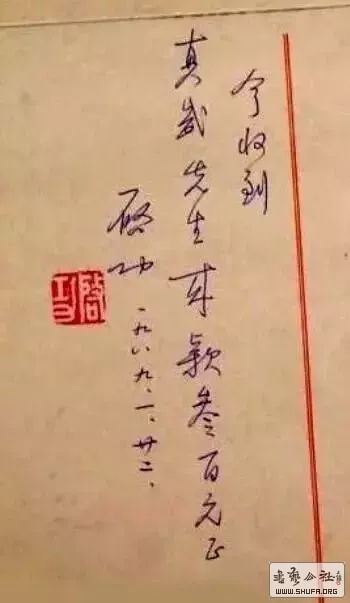 今收到
真先生来款叁百元正
启功
一九八九、一、廿二、
书艺公社
WWW.SHUFA.ORG